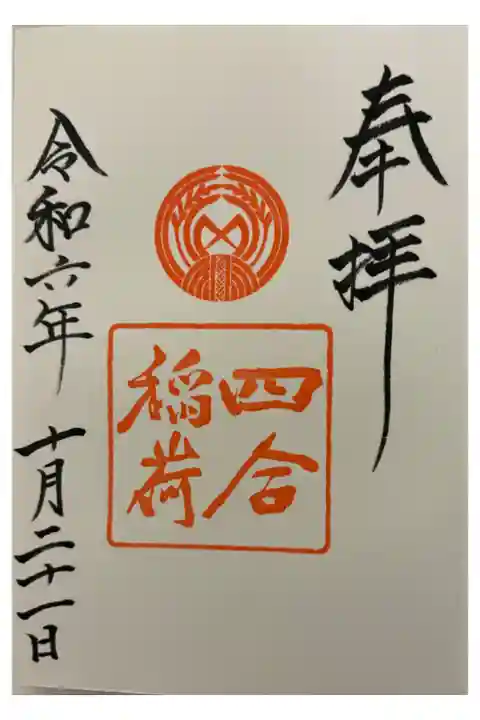 奉拝
四合
稲荷
令和六年 十月二十一日